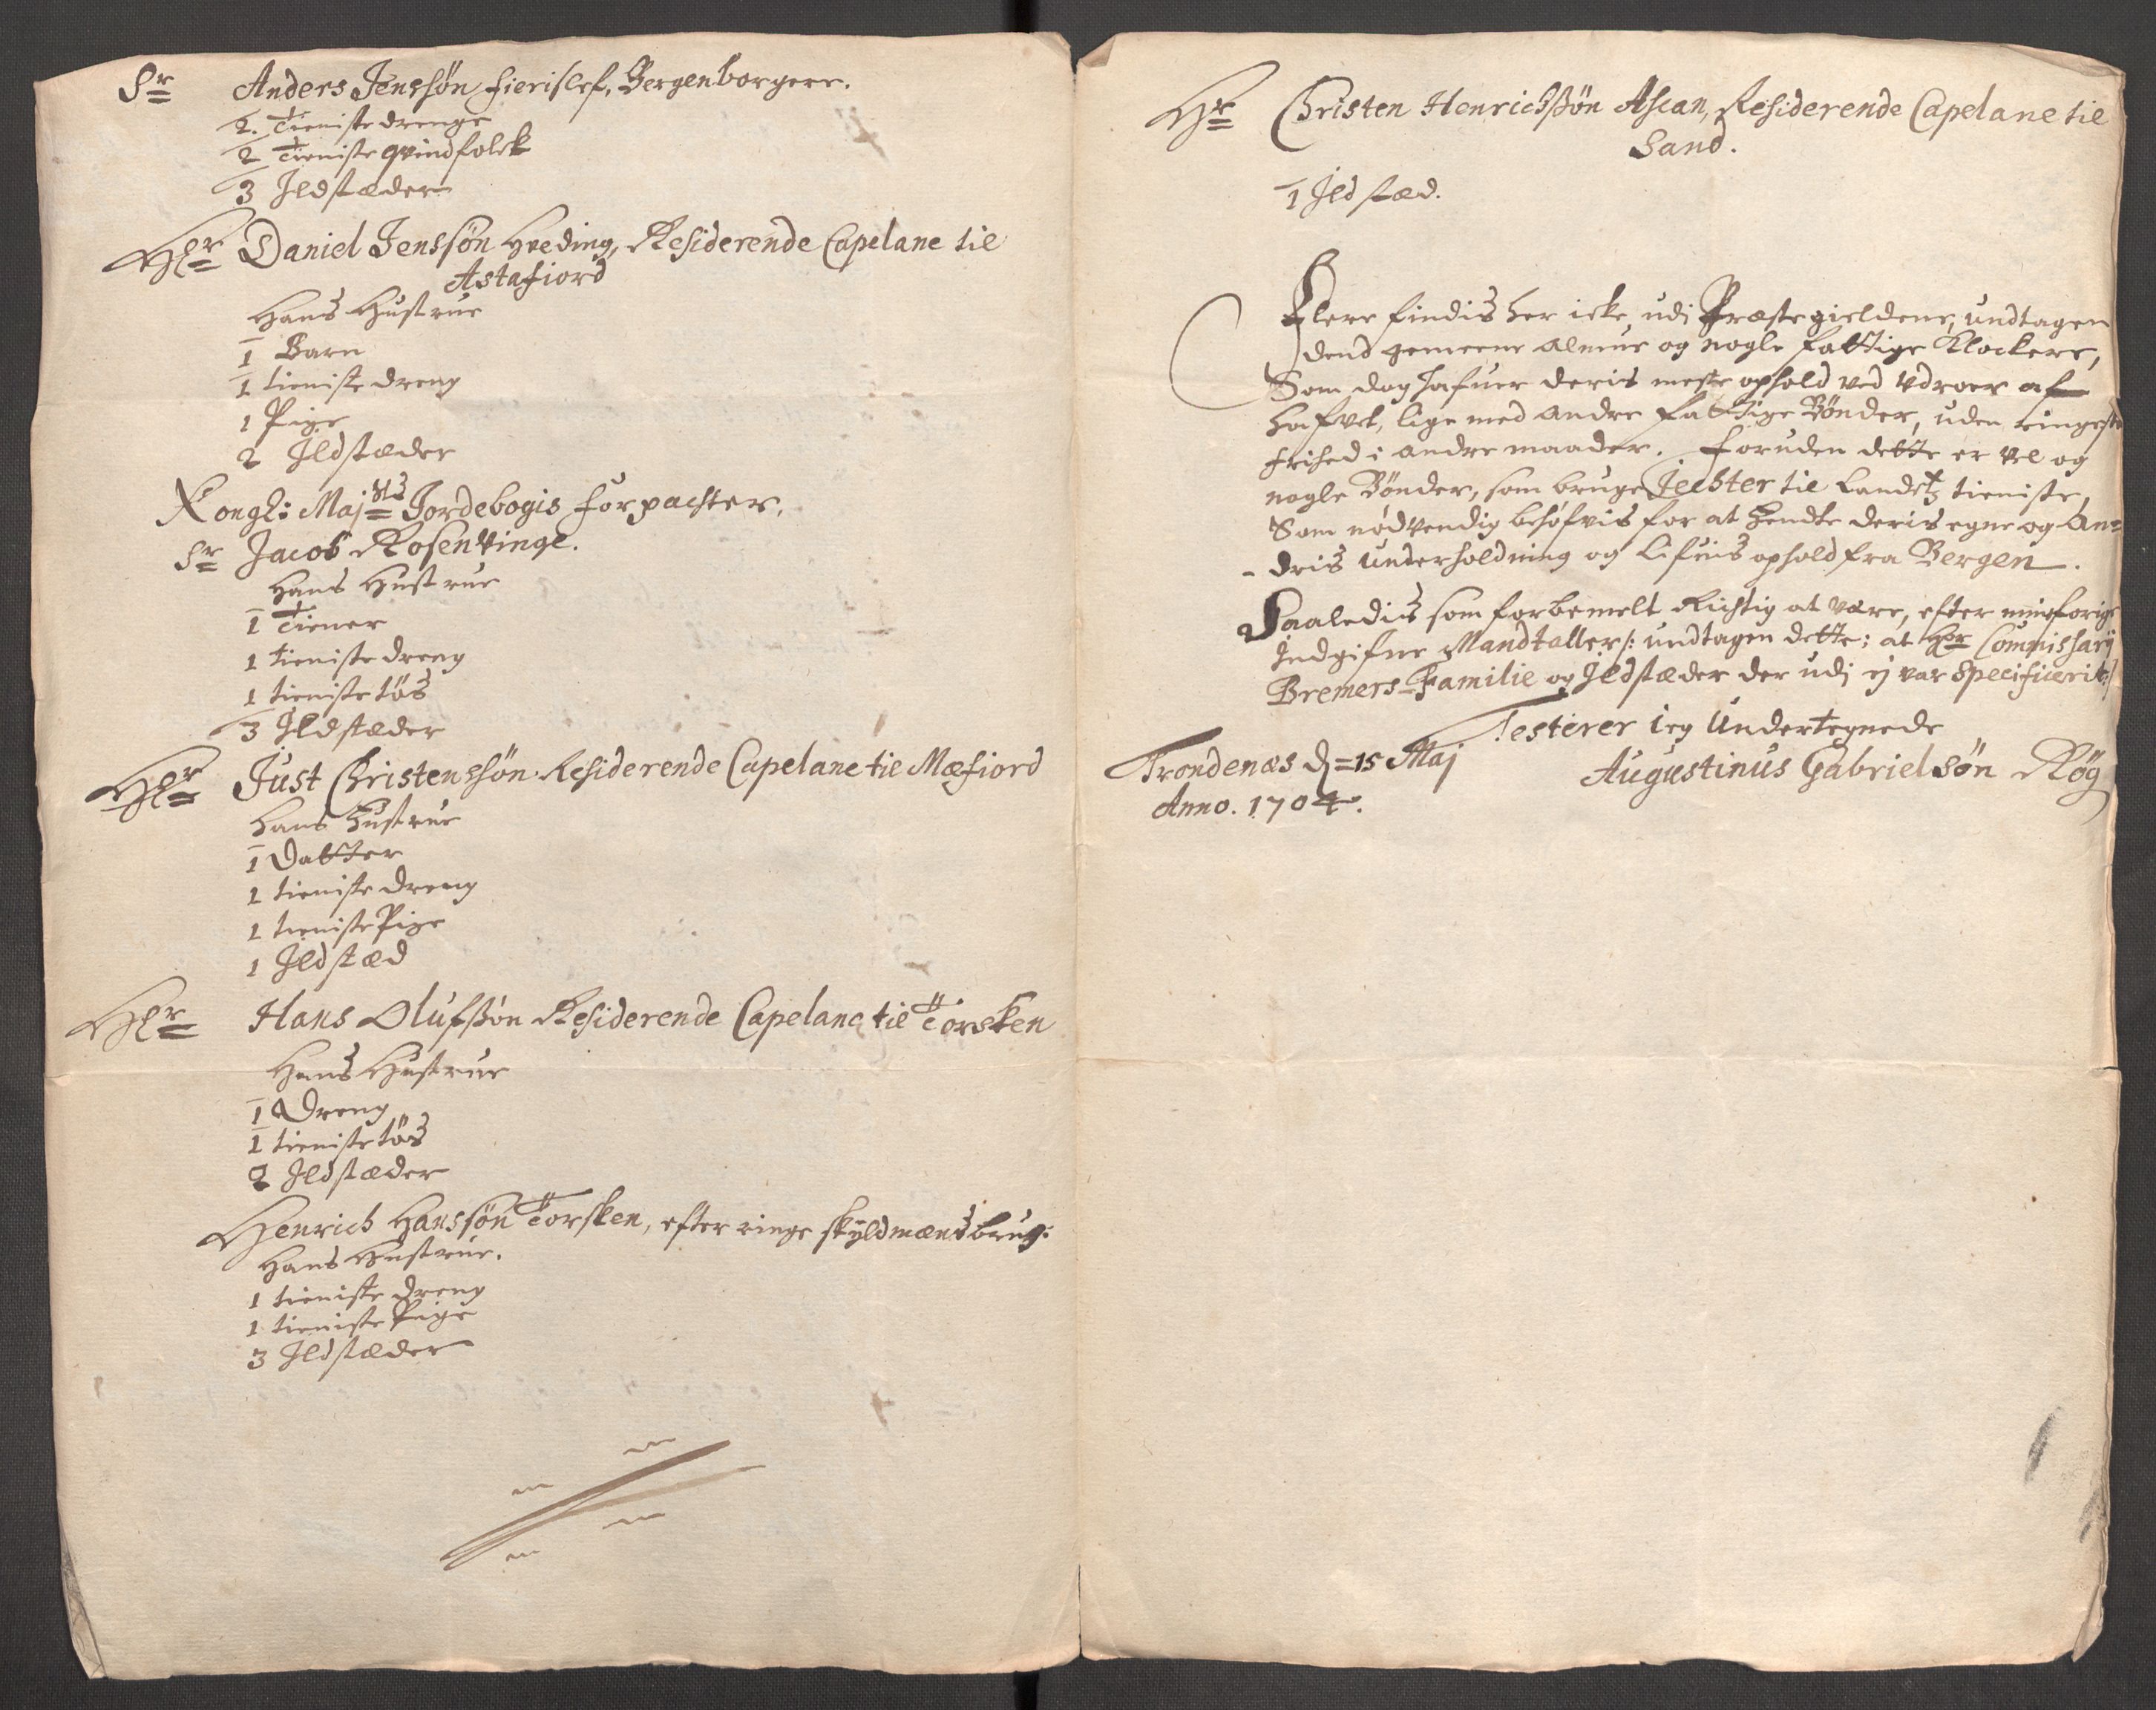 Sr Anders Jenssøn Fierislef, Bergenborgere.
2. Tieniste drenge
2 Tieniste qvindfolck
3 Jldstæder
Hr Daniel Jenssøn Hveding, Residerende Capelane til
Astafiord
Hans Hustrue
1 Barn
1 tieniste dreng
1 Pige
2 Jldstæder
Kongl: Majsts Jordebogis Forpachter,
Sr Jacob Rosenvinge.
Hans Hustrue
1 Tiener
1 tieniste dreng
1 tieniste tøs
3 Jldstæder
Hr Just Christenssøn Residerende Capelane til Mæfiord
Hans Hustrue
1 Datter
1 tieniste dreng
1 tieniste Pige
1 Jldstæd
Hr Hans Olufsøn Residerende Capelane til Torsken
Hans Hustrue
1 Dreng
1 tieniste tøs
2 Jldstæder
Henrich Hanssøn Torsken, efter ringe skyldmænds brug:
Hans Hustrue.
1 tieniste dreng
1 tieniste Pige
3 Jldstæder
Hr Christen Henrichssøn Ascan, Residerende Capelane til
Sand.
1 Jldstæd.
Flere findis her icke, udi Præstegieldene, undtagen
dend gemeene almue og nogle fattige Klockere,
Som dog hafuer deris meste ophold ved Udroer af
hafvet, lige med andre fattige Bønder, uden ringeste
frihed i andre maader. Foruden dette er vel og
nogle Bønder, som bruge Jechter til Landetz tieniste,
Som nødvendig behøfvis for at hendte deris egne og An=
-dris underholdning og Lifuis ophold fra Bergen.
Saaledis som forbemelt Richtig at være, efter min forige
Jndgifne Mandtaller /: undtagen dette; at Hr Commissarij
Bremers Familie og Jldstæder der udj ej var Specificerit :/
Testerer ieg Undertegnede
Trondenæs d=15 Maj
Anno. 1704.
Augustinus Gabrielsøn Røg